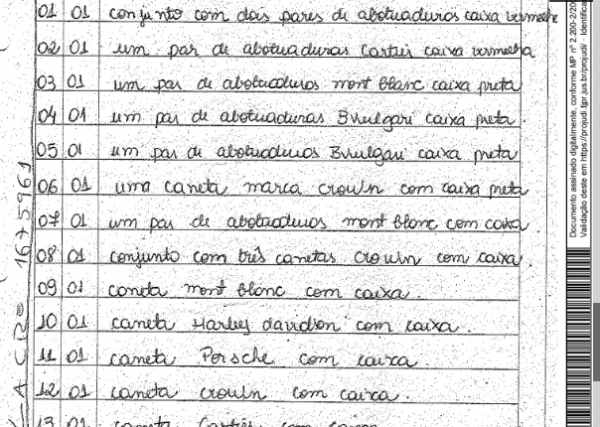 01 01 conjunto com dois pares de abotuaduros caixa vermelha
02 01 um par de abotuaduras Cartui caixa vermelha
03 01 um par de abotuaduros mont blanc caixa preta
04 01 um par de abotuaduras Bvulgari caixa preta.
05 01 um par de abotuaduros Bvulgari caixa preta
06 01 uma caneta marca crowln com caixa preta
07 01 um par de abotuaduros mont blanc com caixa
08 01 conjunto com três canetas crowln com caixa.
09 01 caneta mont blanc com caixa.
10 01 caneta Harley davidson com caixa.
11 01 caneta Porsche com caixa.
12 01 caneta crowln com caixa.
13 01 caneta com caixa
1675961
Documento assinado digitalmente, conforme MP nº 2.200-2/20
Validação deste em https://projudi.tjpr.jus.br/projudi/ Identifica